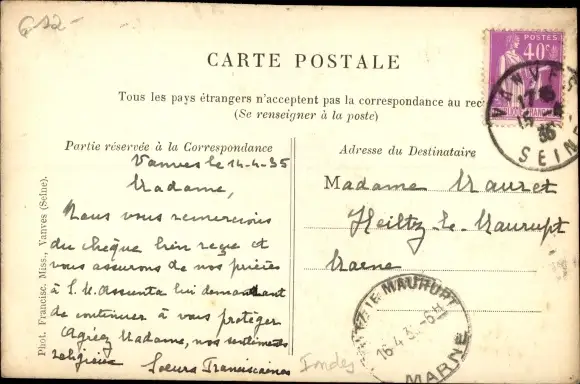 612-
CARTE POSTALE
Tous les pays étrangers n'acceptent pas la correspondance au rec
(Se renseigner à la poste)
Partie réservée à la Correspondance
Vanves le 14-4-35
Madame,
Nous vous remercions
du chèque bien reçu et
vous assurons de nos prières
à S. M. Assunta lui demandant
de continuer à vous protéger
Agréez Madame, nos sentiments
religieux
Soeurs Franciscaines
Phot. Francisc. Miss., Vanves (Seine).
Adresse du Destinataire
Madame Mauret
Heiltz-le-Maurupt
Marne
POSTES
40c
VANVES
SEINE
LE MAURUPT
16-4-3
MARNE
Indes